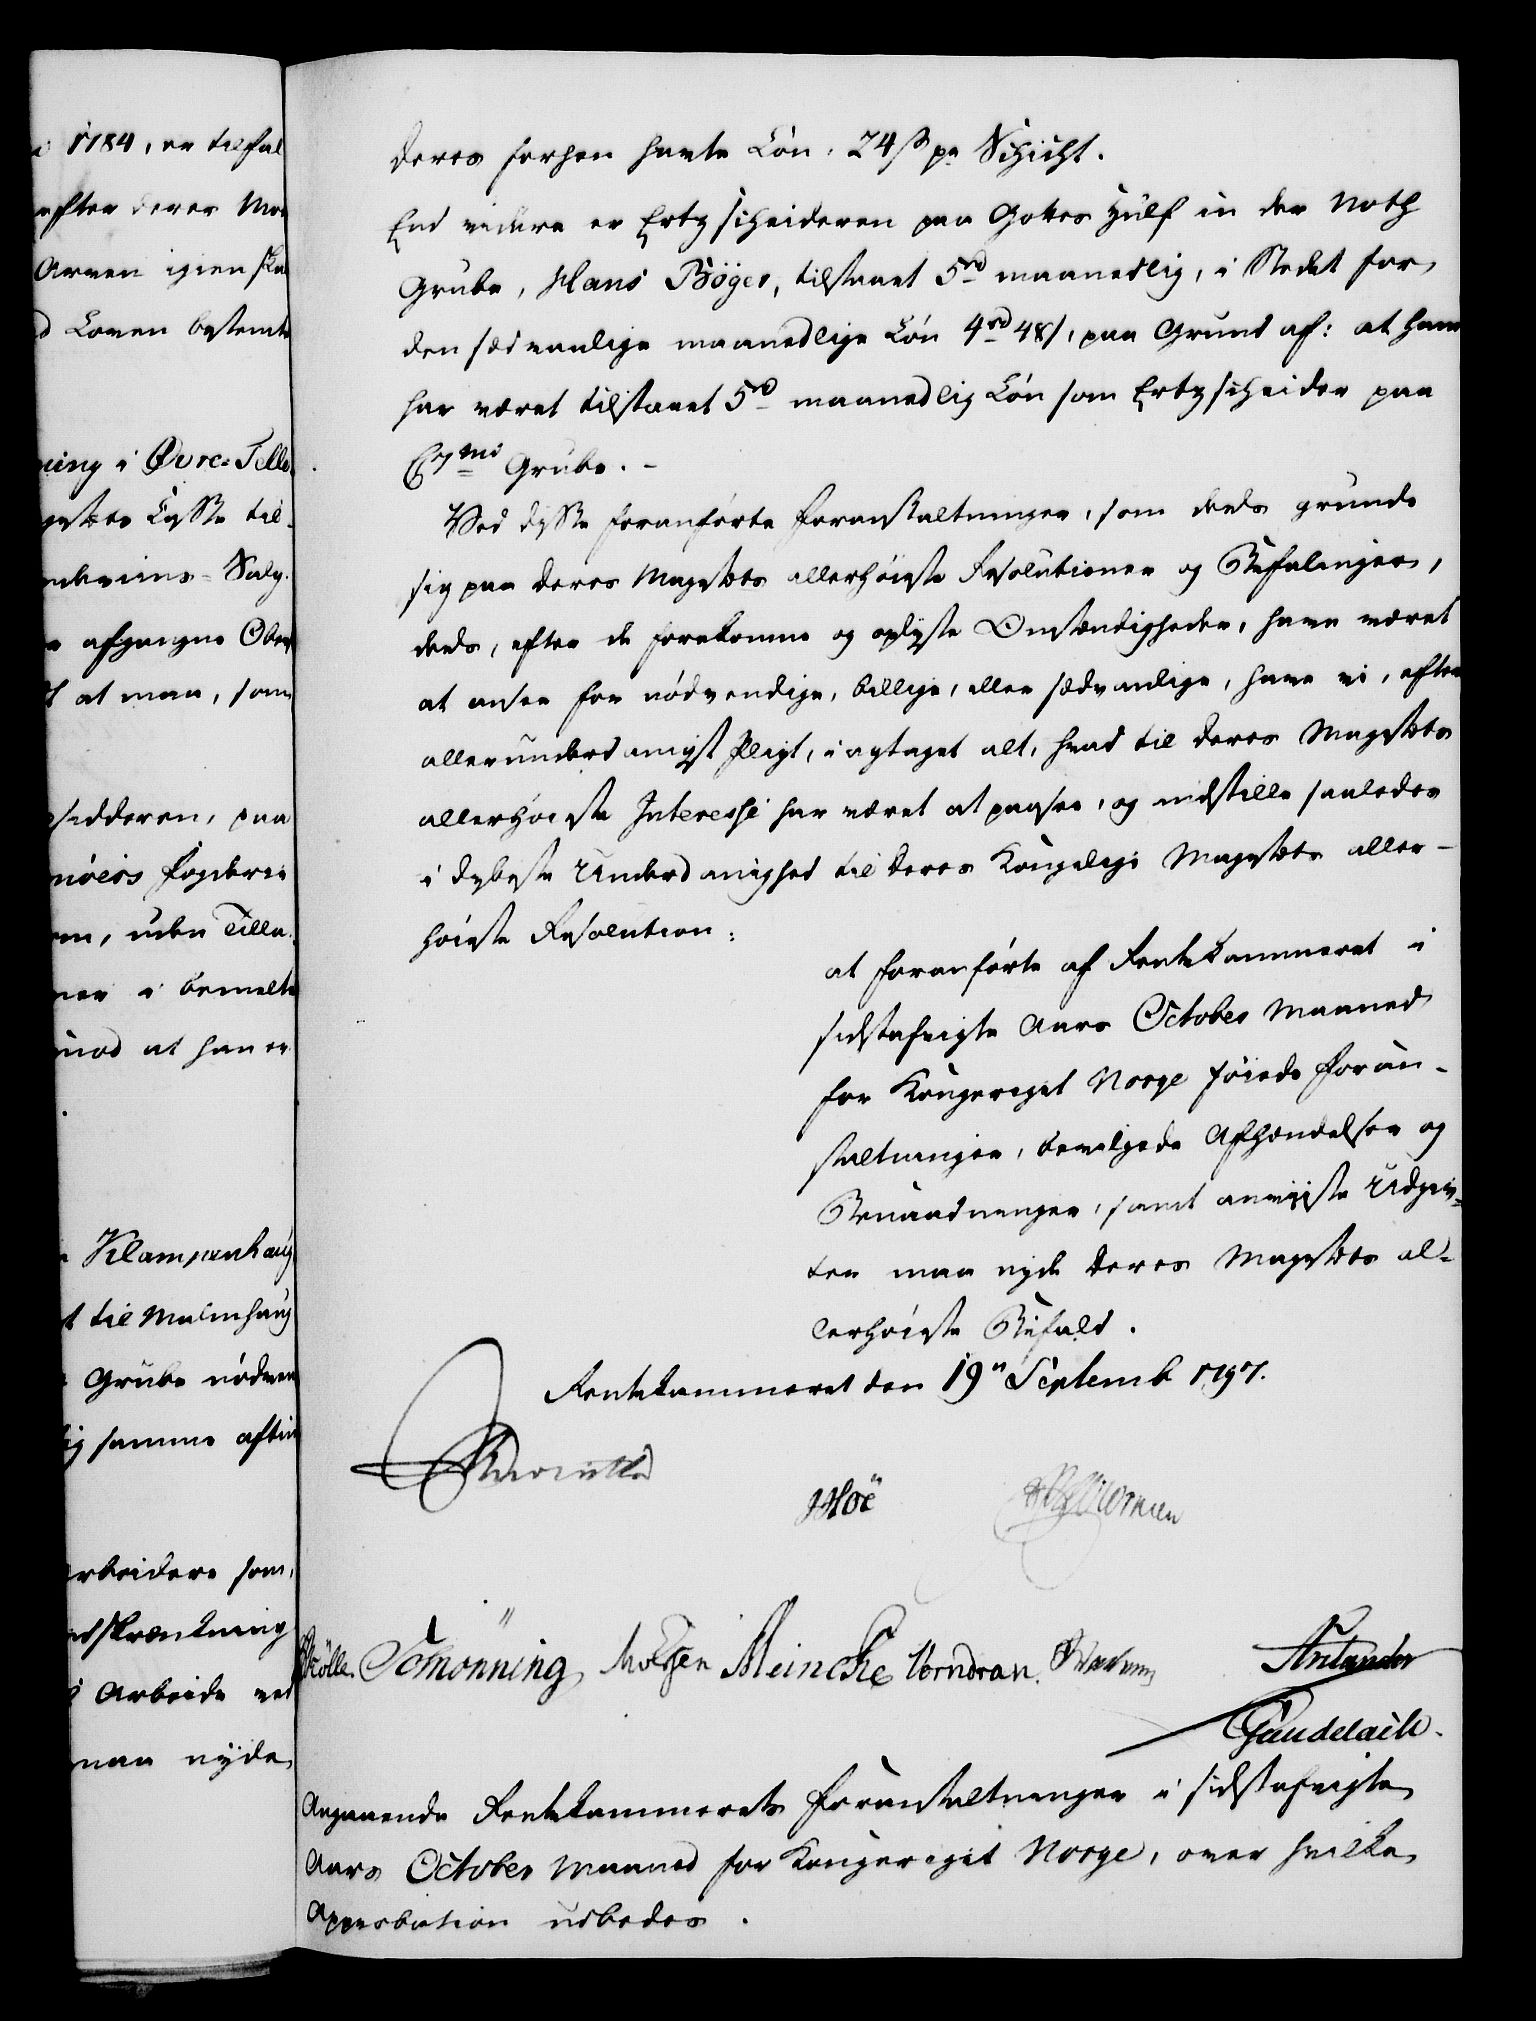 i 1784, er tilfal
efter deres Mo
Arven igien ska
d Loven bestemte
ning i Øvre-Telle
gestets Lyste til-
ndeviins-Salg.
e afgangne Ober
t at man, som
sidderen, paa
møers Fogderie
em, uden Tilla
ner i bemelte
imod at han er
Klampenhaug
t til Malmhaug
Grube nødven
ig samme aftin
Arbeidere som,
ndskrænkning
Arbeide ved
maa nyde
deres forhen havte Løn, 24 s pr Schicht.
End videre er Ertzscheideren paa Gottes Hülf in der Noth
Grube, Hans Böger, tilstaaet 5 rd maanedlig, i Stedet for
den sædvanlige maanedlige Løn 4 rd 48 s, paa Grund af: at ham
har været tilstaaet 5 rd maanedlig Løn som Ertzscheider paa
C 7mi Grube. -
Ved disse foranførte Foranstaltninger, som deels grunde
sig paa Deres Majestets allerhøieste Resolutioner og Befalinger,
deels, efter de forekomne og oplyste Omstændigheder, have været
at ansee for nødvendige, billige, eller sædvanlige, have vi, efter
allerunderdanigst Pligt, iagtaget alt, hvad til Deres Majestets
allerhøieste Interesse har været at paasee, og indstille saaledes
i dybeste Underdanighed til Deres Kongelige Majestets aller-
høieste Resolution:
at foranførte af Rentekammeret i
sidstafvigte Aars October Maaned
for Kongeriget Norge føiede Foran-
staltninger, bevilgede Afhændelser og
Benaadninger, samt anviiste Udgiv-
ter maa nyde Deres Majestets al-
lerhøieste Bifald.
Rentekammeret den 19n Septemb 1797.
Reventlow
Höe
Schönning Meincke Vorndran
Gaudelach.
Angaaende Rentekammerets Foranstaltninger i sidstafvigte
Aars October Maaned for Kongeriget Norge, over hvilke
Approbation udbedes.